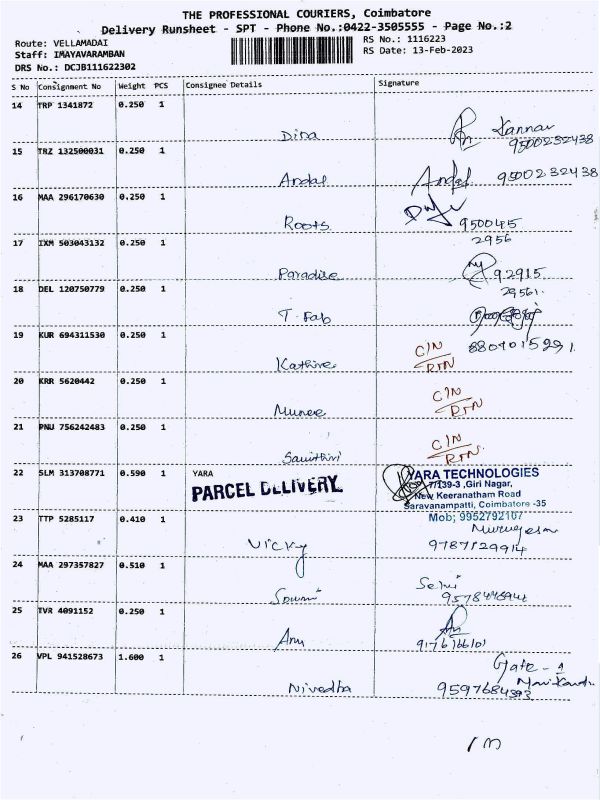 THE PROFESSIONAL COURIERS, Coimbatore
Delivery Runsheet - SPT - Phone No.:0422-3505555 - Page No.:2
Route: VELLAMADAI
RS No.: 1116223
Staff: IMAYAVARAMBAN
RS Date: 13-Feb-2023
DRS No.: DCJB111622302
S No Consignment No Weight PCS Consignee Details Signature
14 TRP 1341872 0.250 1
Dina Kannan
9500232438
15 TRZ 132500031 0.250 1
Andal Andal 9500232438
16 MAA 296170630 0.250 1
Roots 950045
2956
17 IXM 503043132 0.250 1
Paradise 92915
29561.
18 DEL 120750779 0.250 1
T. Fab
8807015291
19 KUR 694311530 0.250 1
Kathire C/N
RTN
20 KRR 5620442 0.250 1
Munee C/N
RTN
21 PNU 756242483 0.250 1
Savithiri C/N
RTN
22 SLM 313708771 0.590 1 YARA
PARCEL DELIVERY
YARA TECHNOLOGIES
7/139-3 ,Giri Nagar,
New Keeranatham Road
Saravanampatti, Coimbatore -35
Mob; 9952792107
23 TTP 5285117 0.410 1
Murugesan
Vicky 9787129914
24 MAA 297357827 0.510 1
Selvi
25 TVR 4091152 0.250 1
Anu 9176166101
26 VPL 941528673 1.600 1
Gate - 1
Nivedha 9597684393